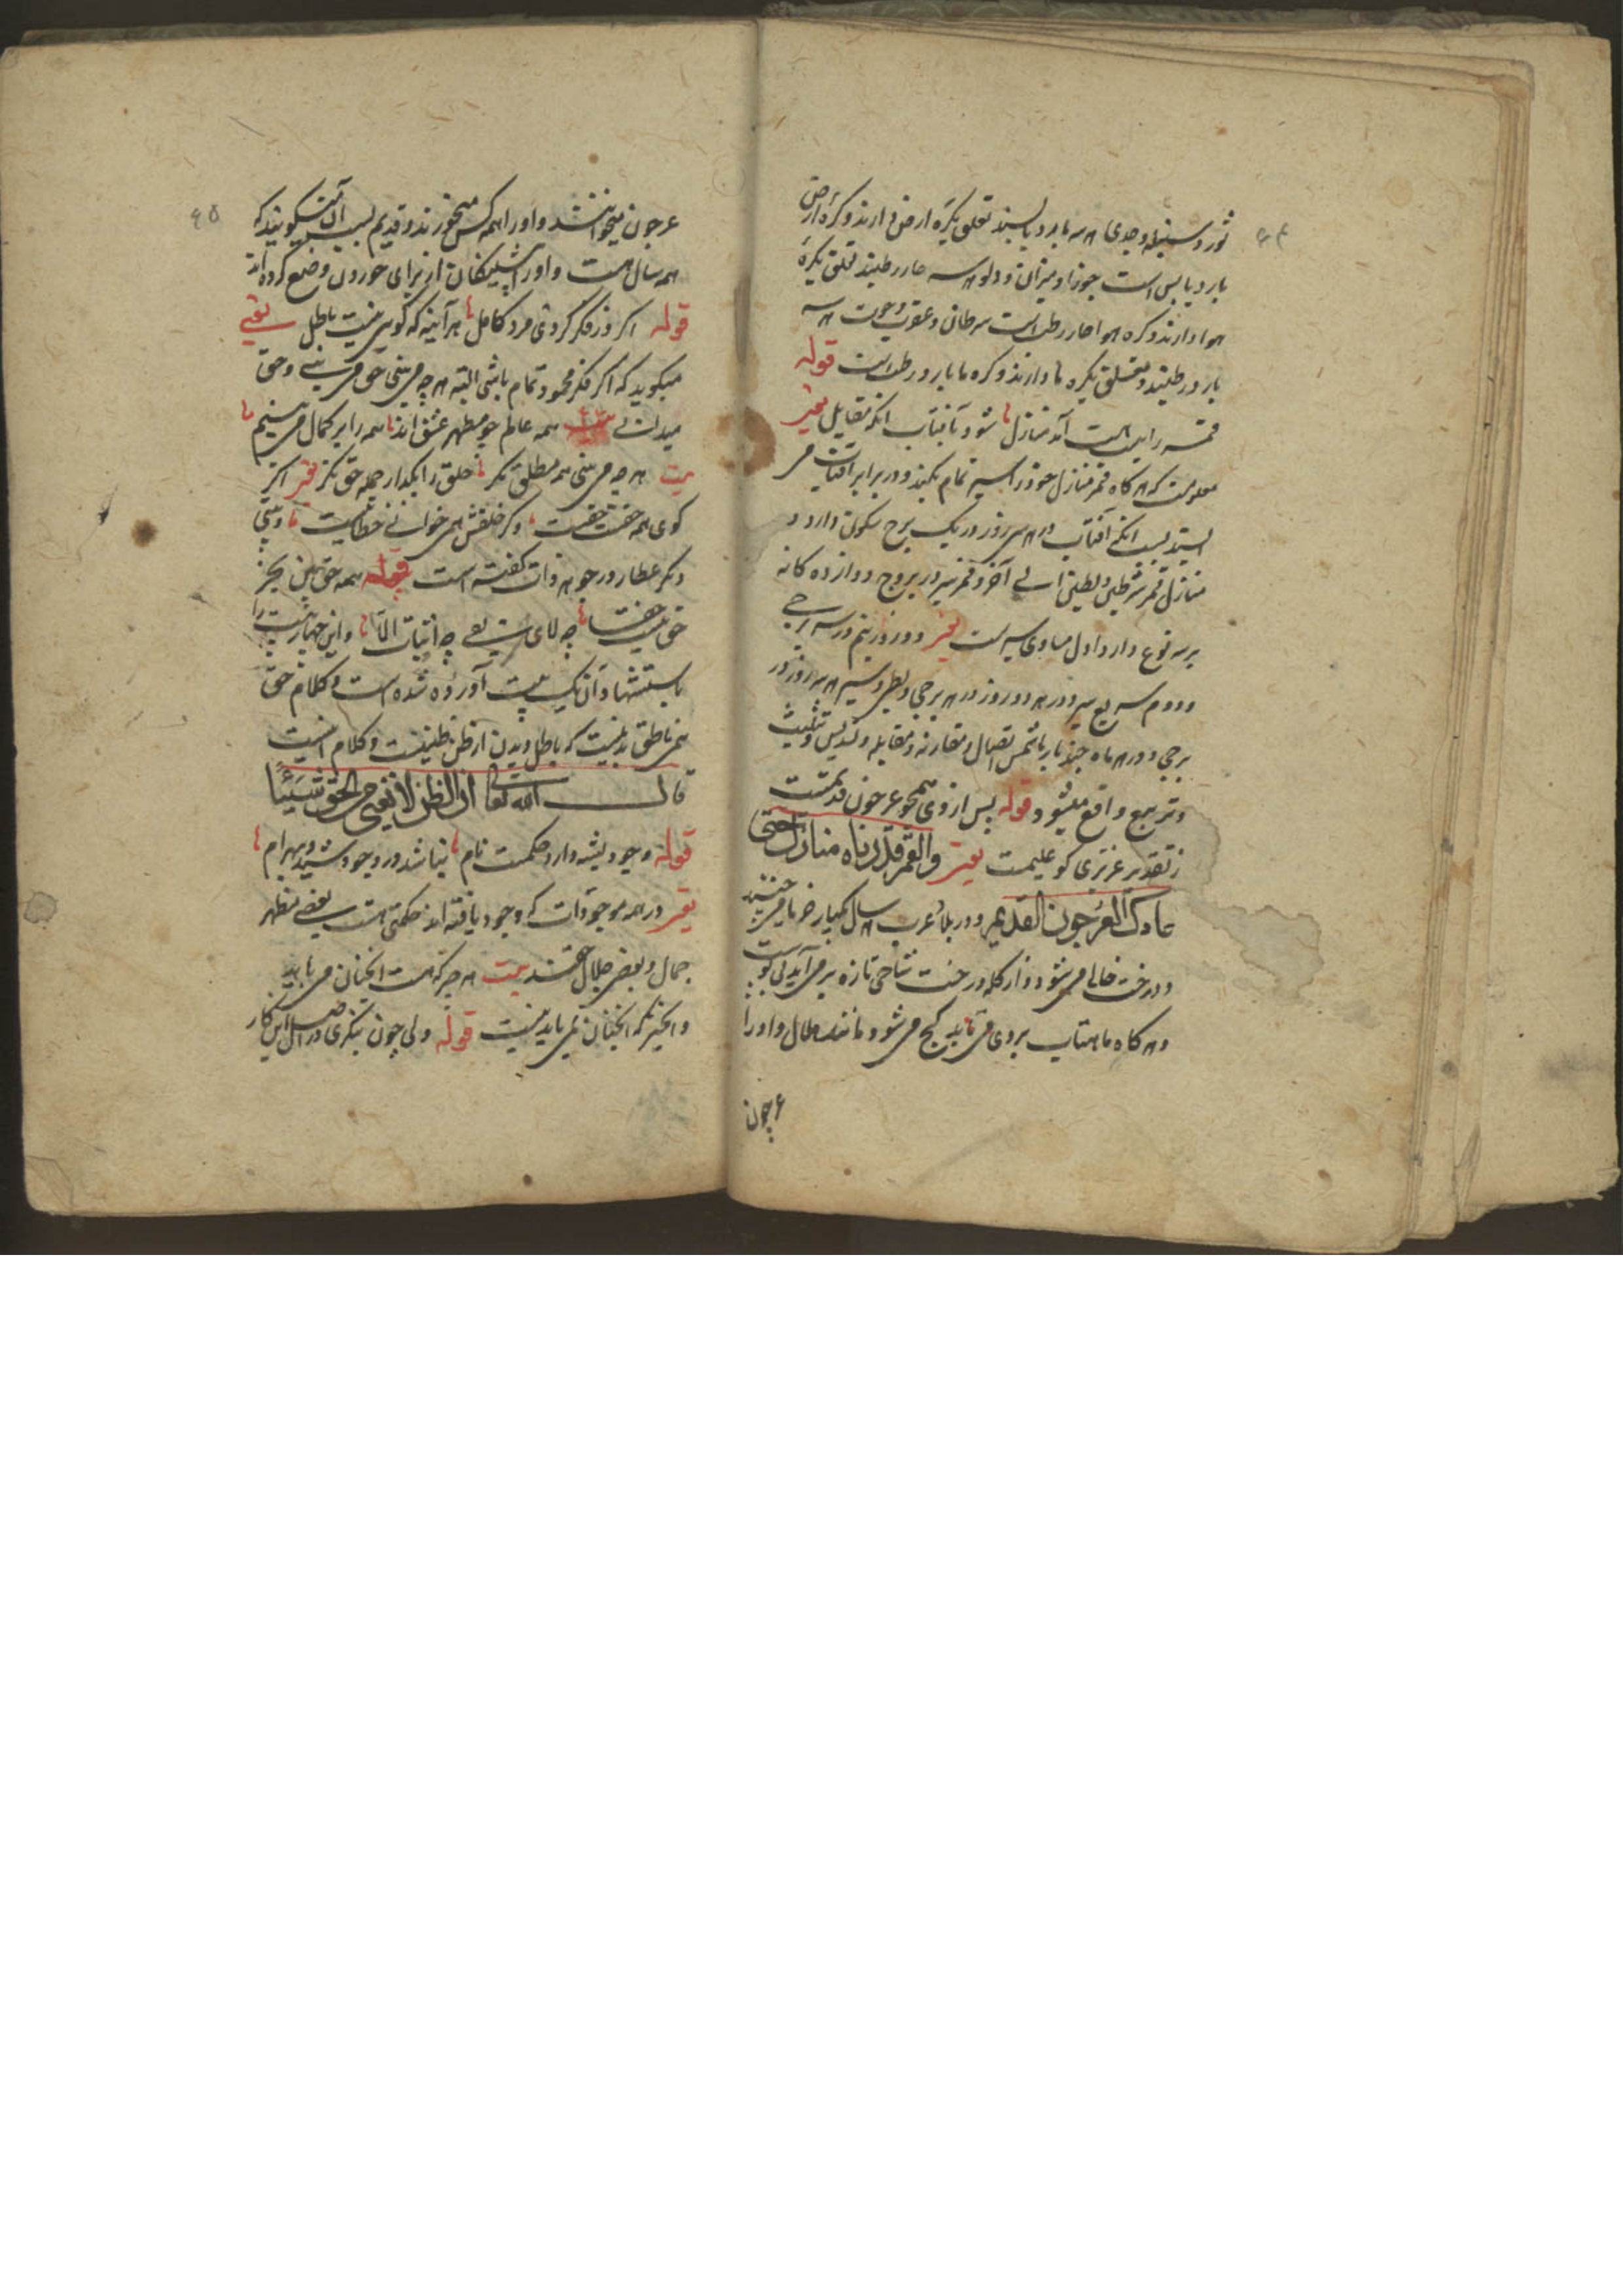 ثور و سنبله و جدی هر سه بارد و یابسند تعلق بکره ارض دارند و کره ارض
بارد یابس است جوزا و میزان و دلو هر سه حار رطبند تعلق بکره
هوا دارند و کره هوا حار رطب است سرطان و عقرب و حوت هر سه
بارد رطبند و تعلق بکره ما دارند و کره ما بارد رطب است قوله
قمر را بیست آمد منازل شود با آفتاب انکه مقابل یعنی
معلومست که هر کاه قمر منازل خود را سیر تمام بکند و در برابر آفتاب می
ایستد بسبب انکه آفتاب در هر سی روز در یک برج سکون دارد و
منازل قمر شرطین و بطین الی آخر و قمر سیر در بروج دوازده کانه
بر سه نوع دارد اول مساوی سیر است یعنی دو روز و نیم در هر برجی
و دوم سریع سیر در هر دو روز در هر برجی و بطی سیر هر سه روز در
برجی و در هر ماه چند بار با شمس اتصال و مقارنه و مقابله و تسدیس و تثلیث
و تربیع واقع میشود قوله پس از وی همچو عرجون قدیمست
ز تقدیر عزیزی کو علیمست یعنی والقمر قدرناه منازل حتی
عاد کالعرجون القدیم و در بلاد عرب هر سال یکبار خرما میچینند
و درخت خالی می شود و از کله درخت شاخی تازه بر می آید
و هر کاه ماهتاب بروی می تابد کج می شود مانند هلال و او را
عرجون
۶۵
عرجون میخوانند و او را همه کس میخورند و قدیم بسبب آن میکویند که
همه سال هست و او را پیشینکان از برای خوردن وضع کرده اند
قوله اکر در فکر کردی مرد کامل هر آینه که کوئی نیست باطل یعنی
میکوید که اکر فکر محمود تمام باشی البته هر چه می بینی حق می بینی و حق
میدانی همه عالم چو مظهر عشق اند همه را بر کمال می بینم
بیت هر چه می بینی همه مطلق نکر خلق را بکذار جمله حق نکر اکر
کوی همه حقست حقست و کر خلقش همی خوانی خطا نیست و بیتی
دیکر عطار در جوهر ذات کفته است قوله همه حق بین بجز
حق نیست حقا چه لای نفی چه اثبات الا و این چهار بیت را
باستشهاد آن یک بیت آورده شده است و کلام حق
هم ناطق بدینست که باطل دیدن از ظن ظنیست و کلام اینست
قال الله تعالی ان الظن لا یغنی من الحق شیئا
قوله وجود پشه دارد حکمت تام نباشد در وجود تیر و بهرام
یعنی در همه موجودات که وجود یافته اند حکمتی هست بعضی مظهر
جمال و بعضی جلال حقند بیت هر چیز که هست انچنان می باید
و انچیز که انچنان نمی باید نیست قوله ولی چون بنکری در اصل این کار